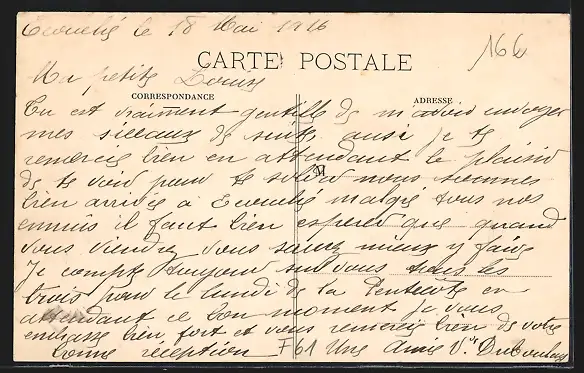 le 18 Mai 1916
166
CARTE POSTALE
Ma petite Louise
CORRESPONDANCE
ADRESSE
Tu est vraiment gentille de m'avoir envoyer
mes de suite aussi je te
remercie bien en attendant le plaisir
de te voir pour te nous sommes
M
bien arrivés à malgré tous nos
ennuis il faut bien esperer que quand
vous viendrez vous serez mieux y faire
Je compte toujours sur vous tous les
trois pour le lundi de la Pentecôte en
attendant ce bon moment je vous
embrasse bien fort et vous remercie bien de votre
bonne réception Une Amie